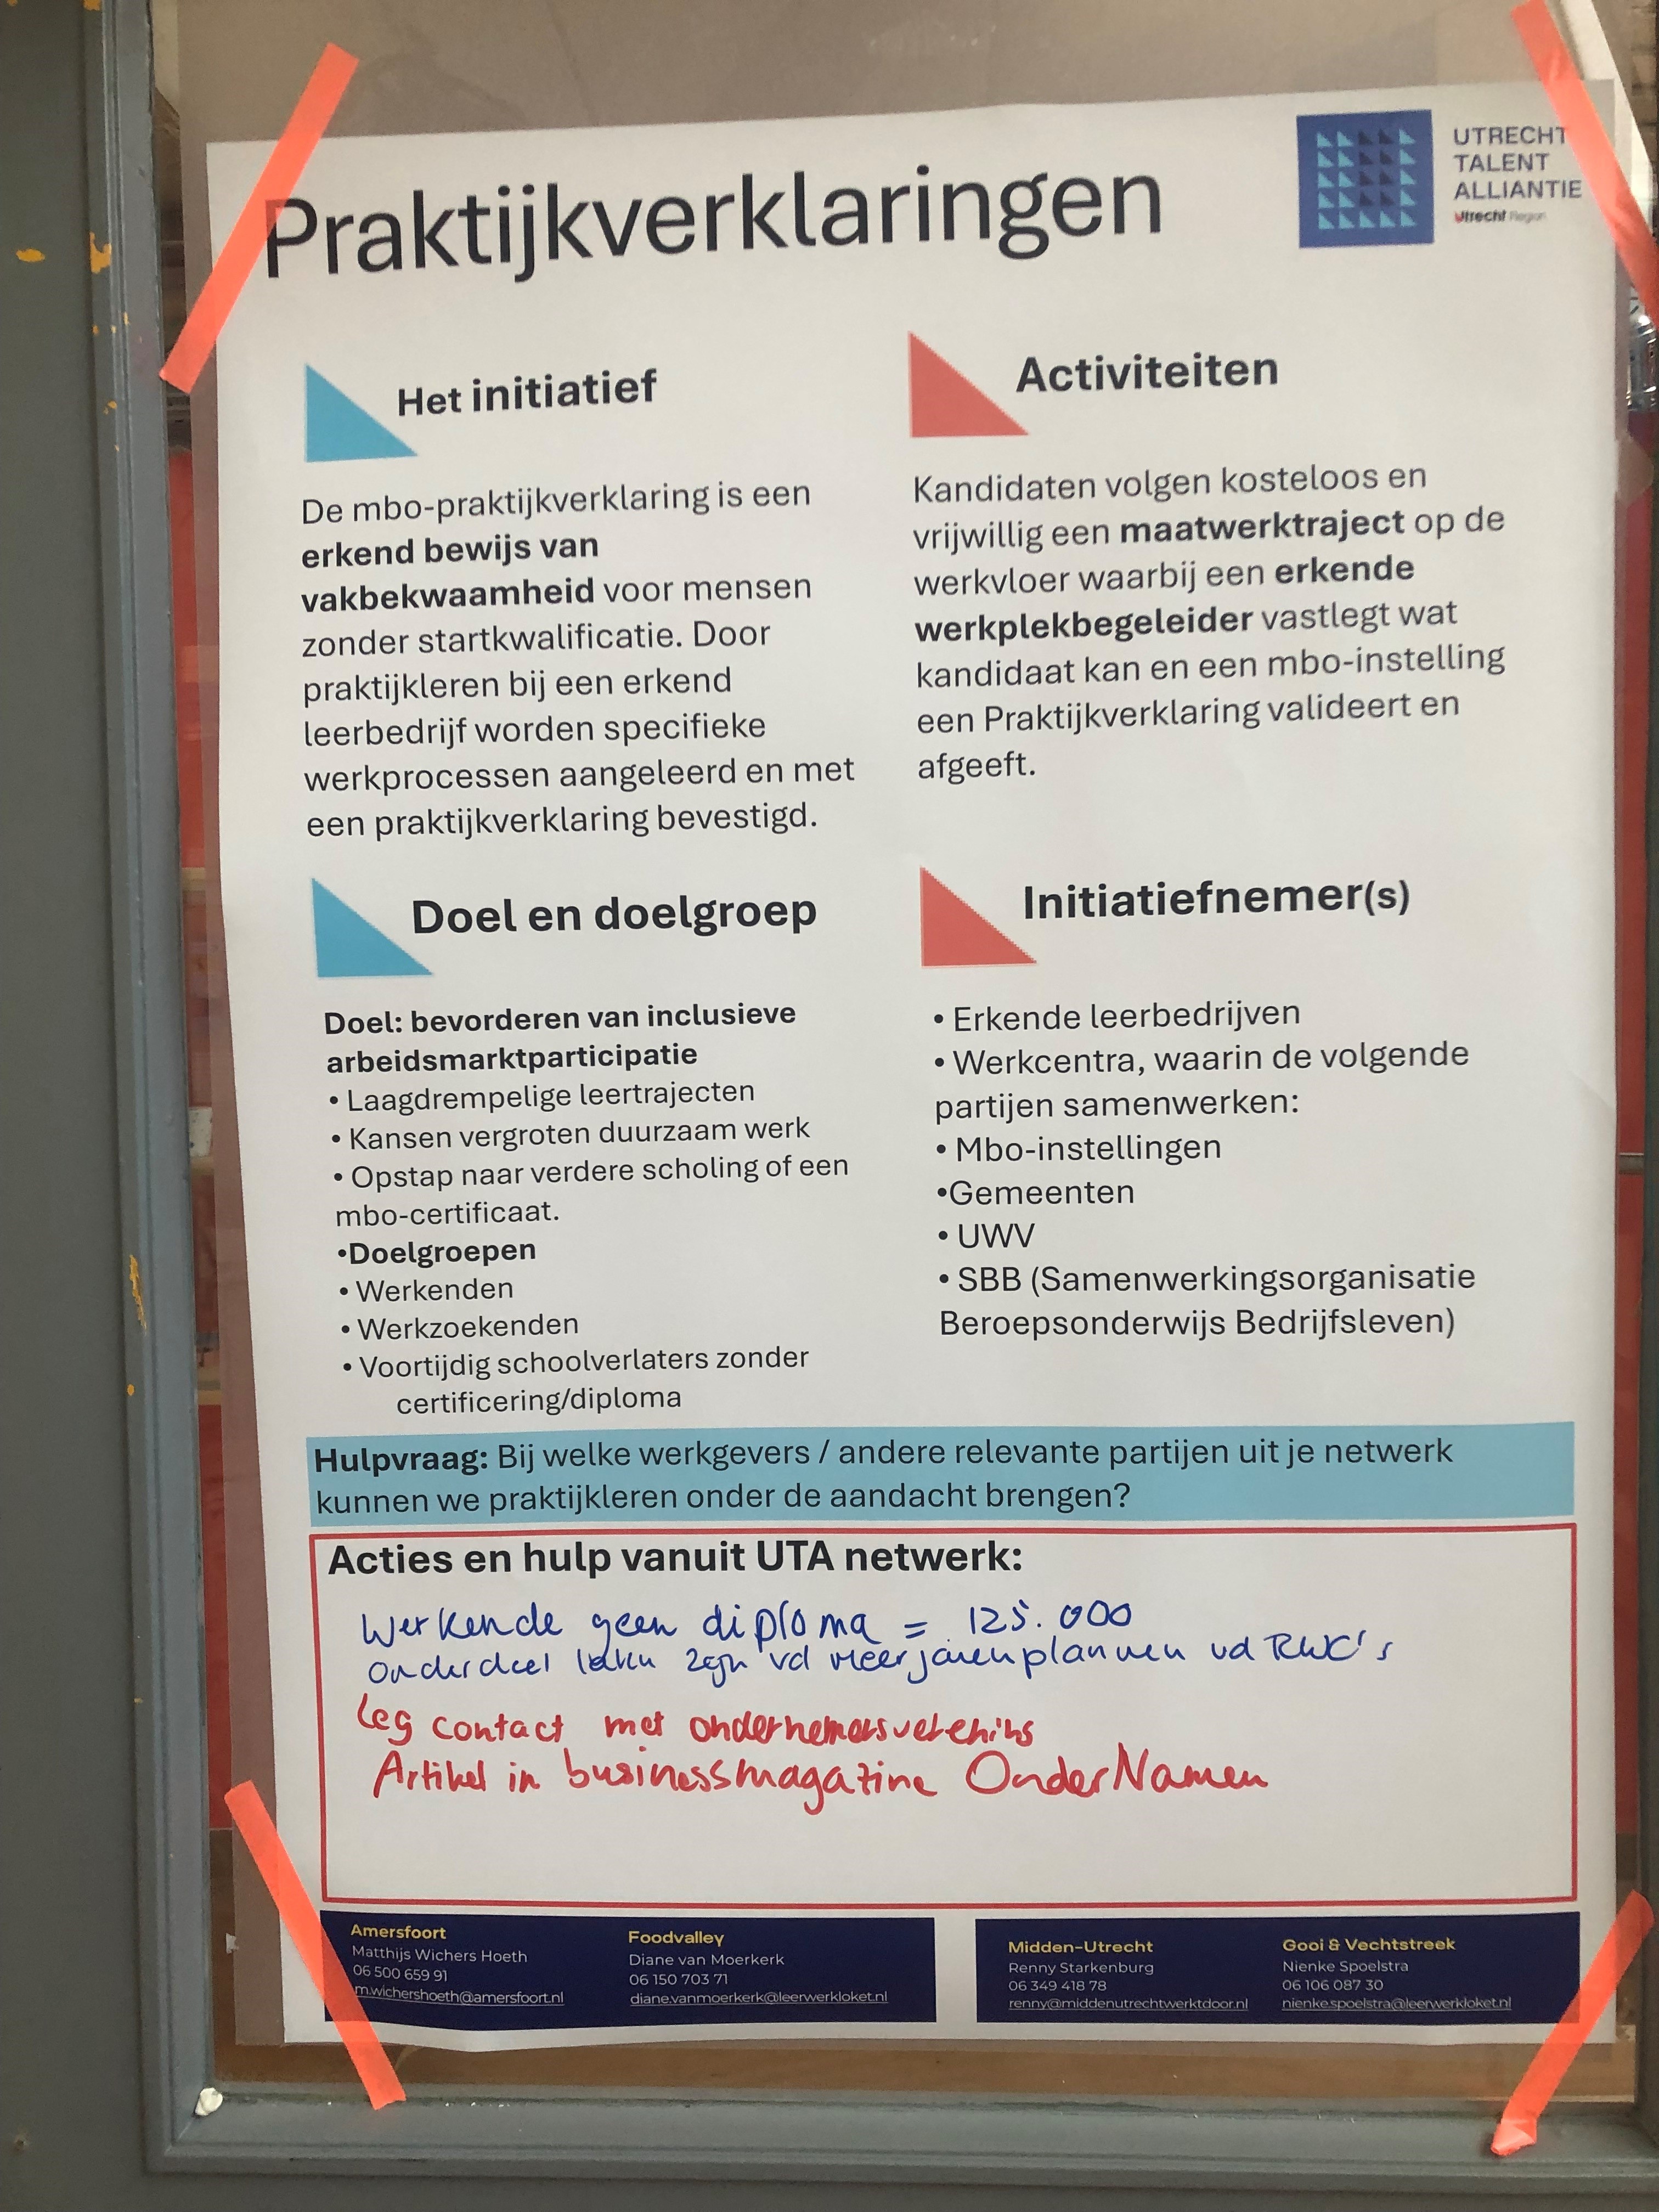 Praktijkverklaringen
UTRECHT
TALENT
ALLIANTIE
Utrecht Region
Het initiatief
De mbo-praktijkverklaring is een
erkend bewijs van
vakbekwaamheid voor mensen
zonder startkwalificatie. Door
praktijkleren bij een erkend
leerbedrijf worden specifieke
werkprocessen aangeleerd en met
een praktijkverklaring bevestigd.
Activiteiten
Kandidaten volgen kosteloos en
vrijwillig een maatwerktraject op de
werkvloer waarbij een erkende
werkplekbegeleider vastlegt wat
kandidaat kan en een mbo-instelling
een Praktijkverklaring valideert en
afgeeft.
Doel en doelgroep
Doel: bevorderen van inclusieve
arbeidsmarktparticipatie
• Laagdrempelige leertrajecten
• Kansen vergroten duurzaam werk
• Opstap naar verdere scholing of een
mbo-certificaat.
•Doelgroepen
• Werkenden
• Werkzoekenden
• Voortijdig schoolverlaters zonder
certificering/diploma
Initiatiefnemer(s)
• Erkende leerbedrijven
• Werkcentra, waarin de volgende
partijen samenwerken:
• Mbo-instellingen
•Gemeenten
• UWV
• SBB (Samenwerkingsorganisatie
Beroepsonderwijs Bedrijfsleven)
Hulpvraag: Bij welke werkgevers / andere relevante partijen uit je netwerk
kunnen we praktijkleren onder de aandacht brengen?
Acties en hulp vanuit UTA netwerk:
Werkende geen diploma = 125.000
onderdeel zijn vd meerjarenplannen vd RWC's
Leg contact met ondernemersvereniging
Artikel in businessmagazine OnderNamen
Amersfoort
Matthijs Wichers Hoeth
06 500 659 91
m.wichershoeth@amersfoort.nl
Foodvalley
Diane van Moerkerk
06 150 703 71
diane.vanmoerkerk@leerwerkloket.nl
Midden-Utrecht
Renny Starkenburg
06 349 418 78
renny@middenutrechtwerktdoor.nl
Gooi & Vechtstreek
Nienke Spoelstra
06 106 087 30
nienke.spoelstra@leerwerkloket.nl